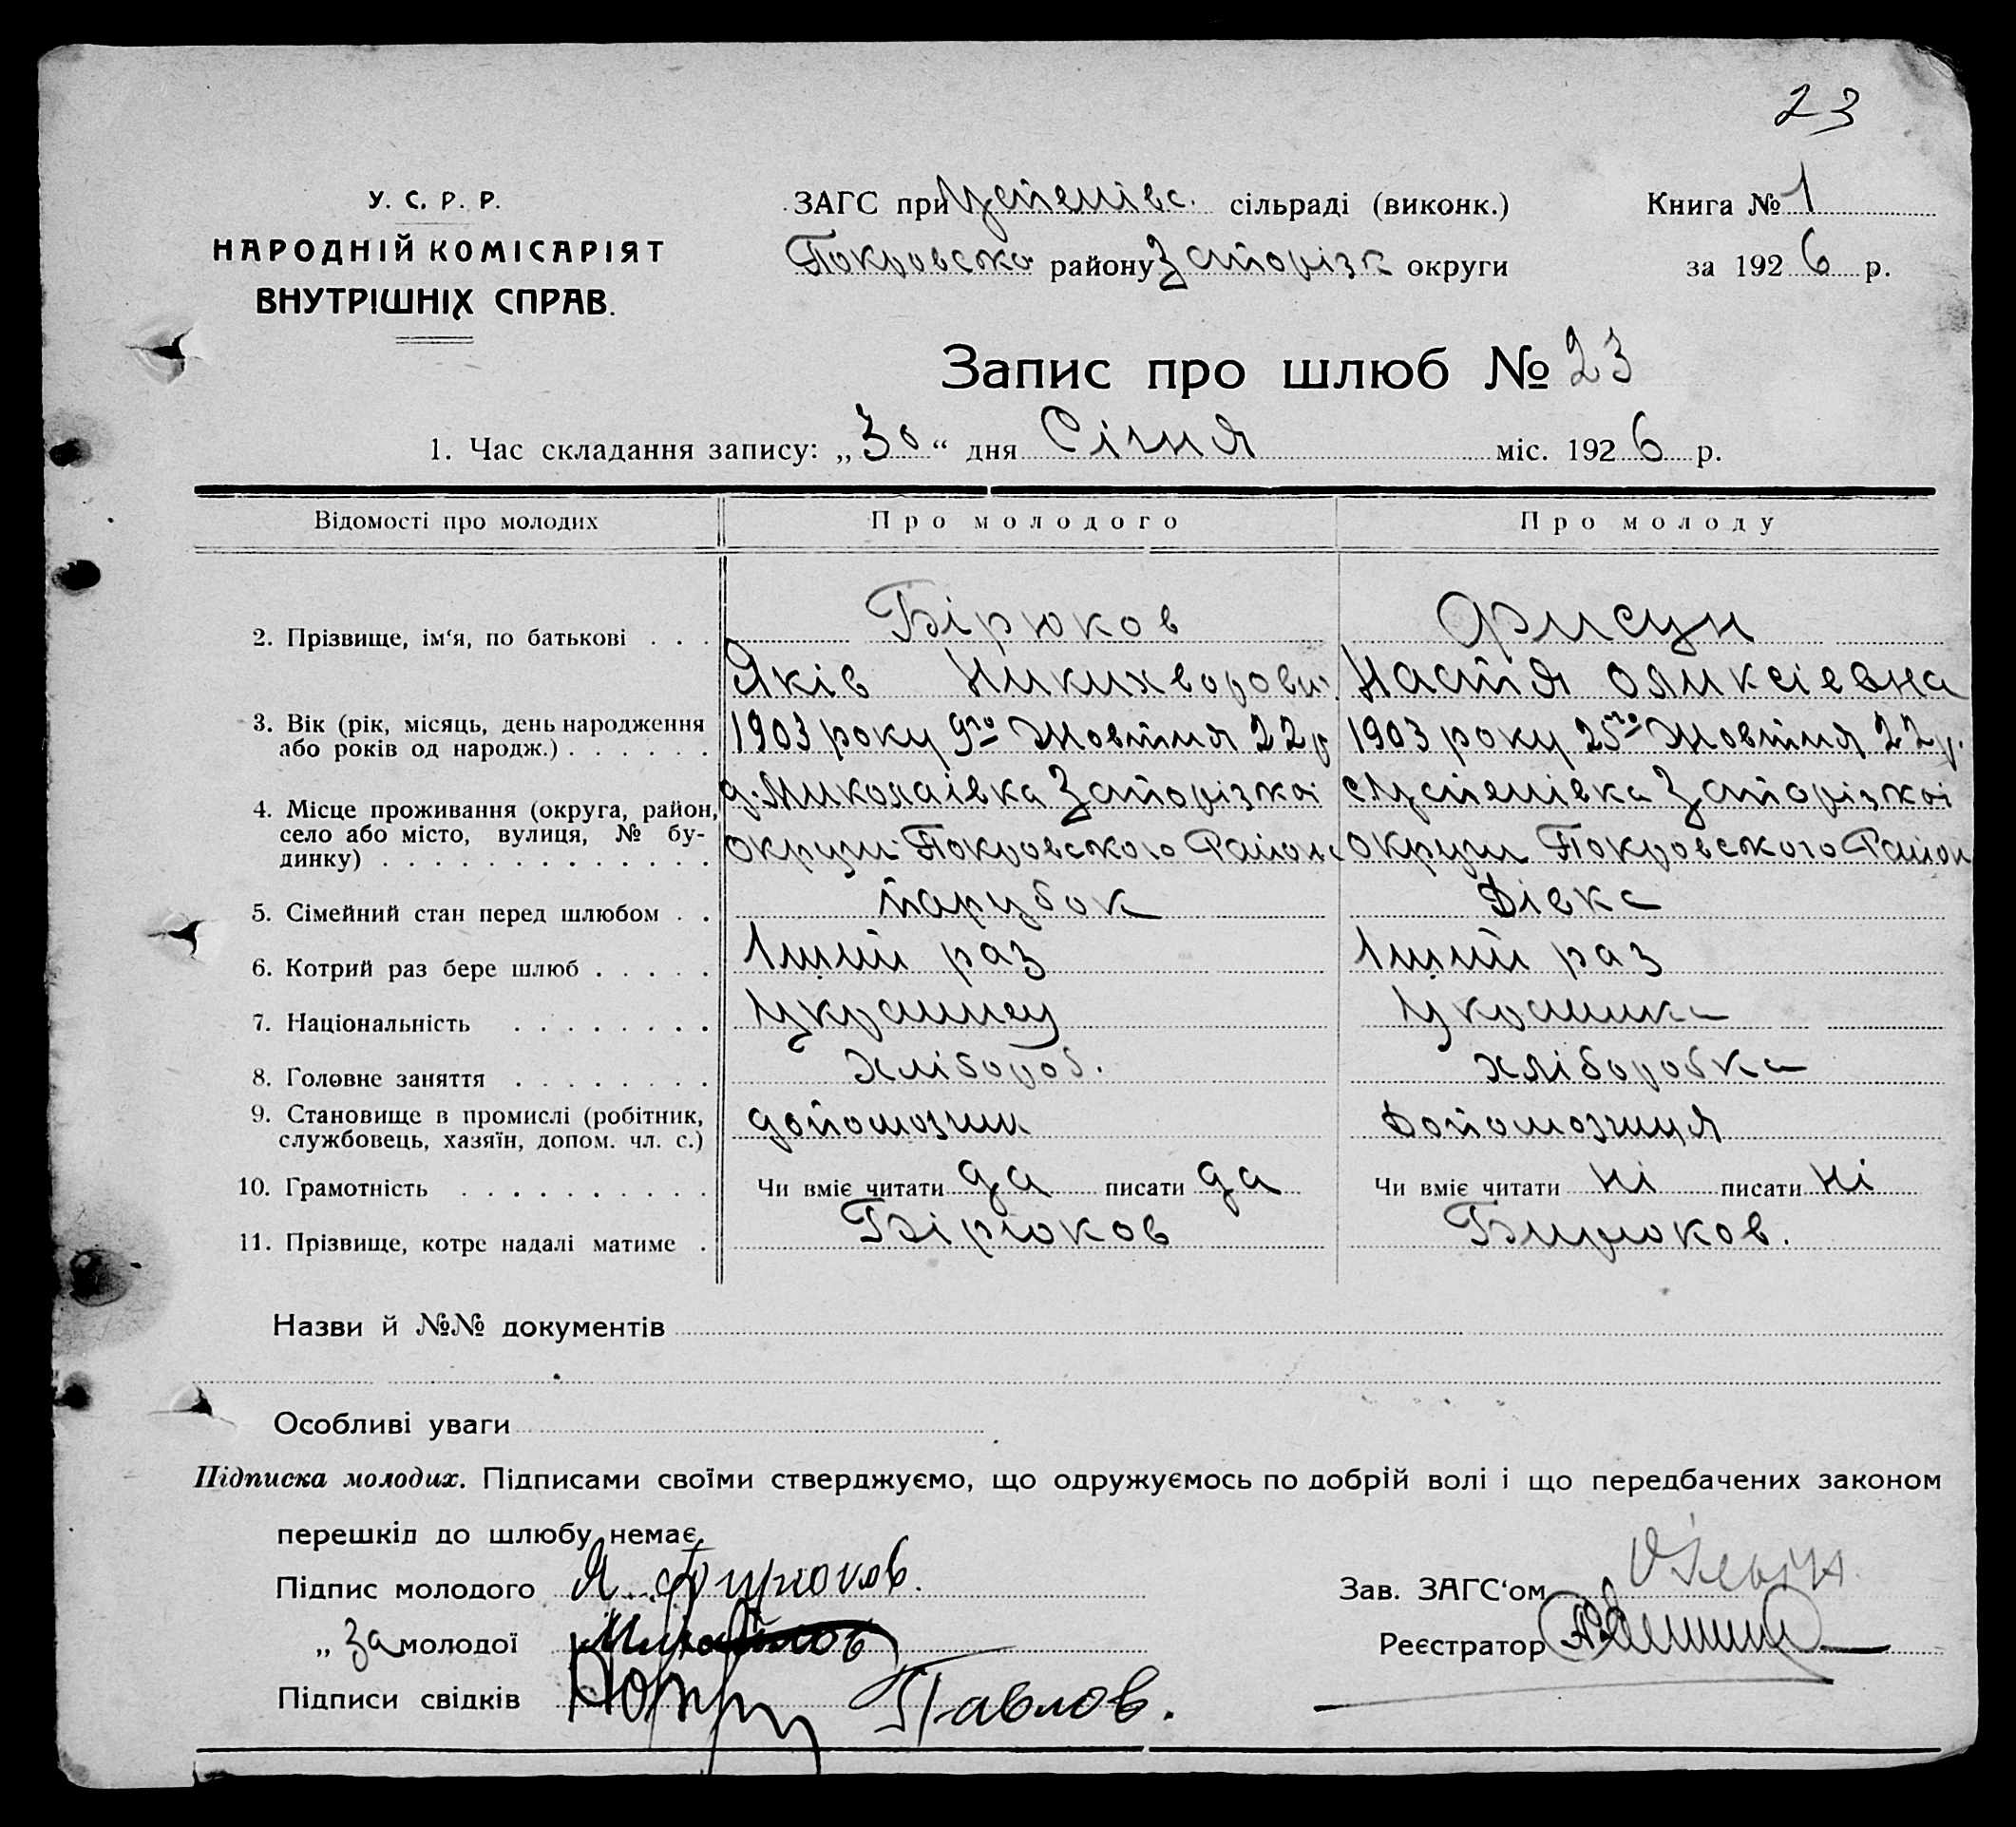 23
У. С. Р. Р.
НАРОДНІЙ КОМІСАРІЯТ
ВНУТРІШНІХ СПРАВ.
ЗАГС при Успенівс. сільраді (виконк.)
Покровсько району Запорізк округи
Книга № 1
за 1926 р.
Запис про шлюб № 23
1. Час складання запису: „30“ дня Січня міс. 1926 р.
Відомості про молодих
Про молодого
Про молоду
2. Прізвище, ім‘я, по батькові . . .
Бірюков
Яків Никихворович.
Фисун
Настія Оликсіевна
3. Вік (рік, місяць, день народження
або років од народж.) . . . . . .
1903 року 9го Жовтня 22р
1903 року 25го Жовтня 22р.
4. Місце проживання (округа, район,
село або місто, вулиця, № бу-
динку) . . . . . . . . . . . . .
д. Миколаівка Запорізкоі
округи Покровського Району
с Успенівка Запорізкоі
округи Покровського Район
5. Сімейний стан перед шлюбом . .
парубок
Дівка
6. Котрий раз бере шлюб . . . . .
1ший раз
1ший раз
7. Національність . . . . . . . .
Украинец
Украинка
8. Головне заняття . . . . . . . .
хлібороб.
хліборобка
9. Становище в промислі (робітник,
службовець, хазяїн, допом. чл. с.)
допомозник
Допомозниця
10. Грамотність . . . . . . . . . .
Чи вміє читати да писати да
Чи вміє читати ні писати ні
11. Прізвище, котре надалі матиме .
Бірюков
Бирюков.
Назви й №№ документів
Особливі уваги
Підписка молодих. Підписами своїми стверджуємо, що одружуємось по добрій волі і що передбачених законом
перешкід до шлюбу немає.
Підпис молодого Я. Бирюков.
Зав. ЗАГС‘ом
„ За молодої
Реєстратор
Підписи свідків Павлов.